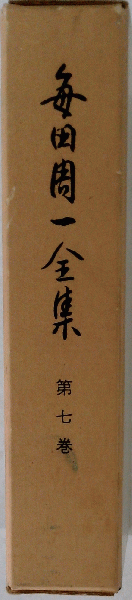 毎田周一全集
第七巻